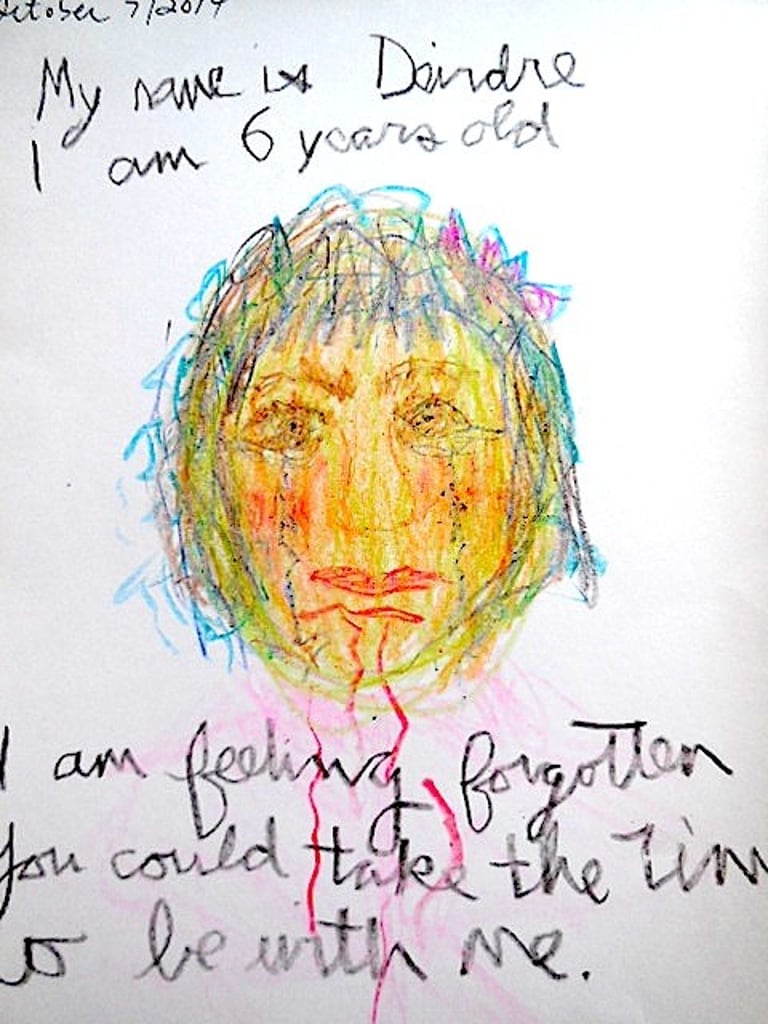 October 7/2014
My name is Deirdre
I am 6 years old
I am feeling forgotten
You could take the Tim
to be with me.